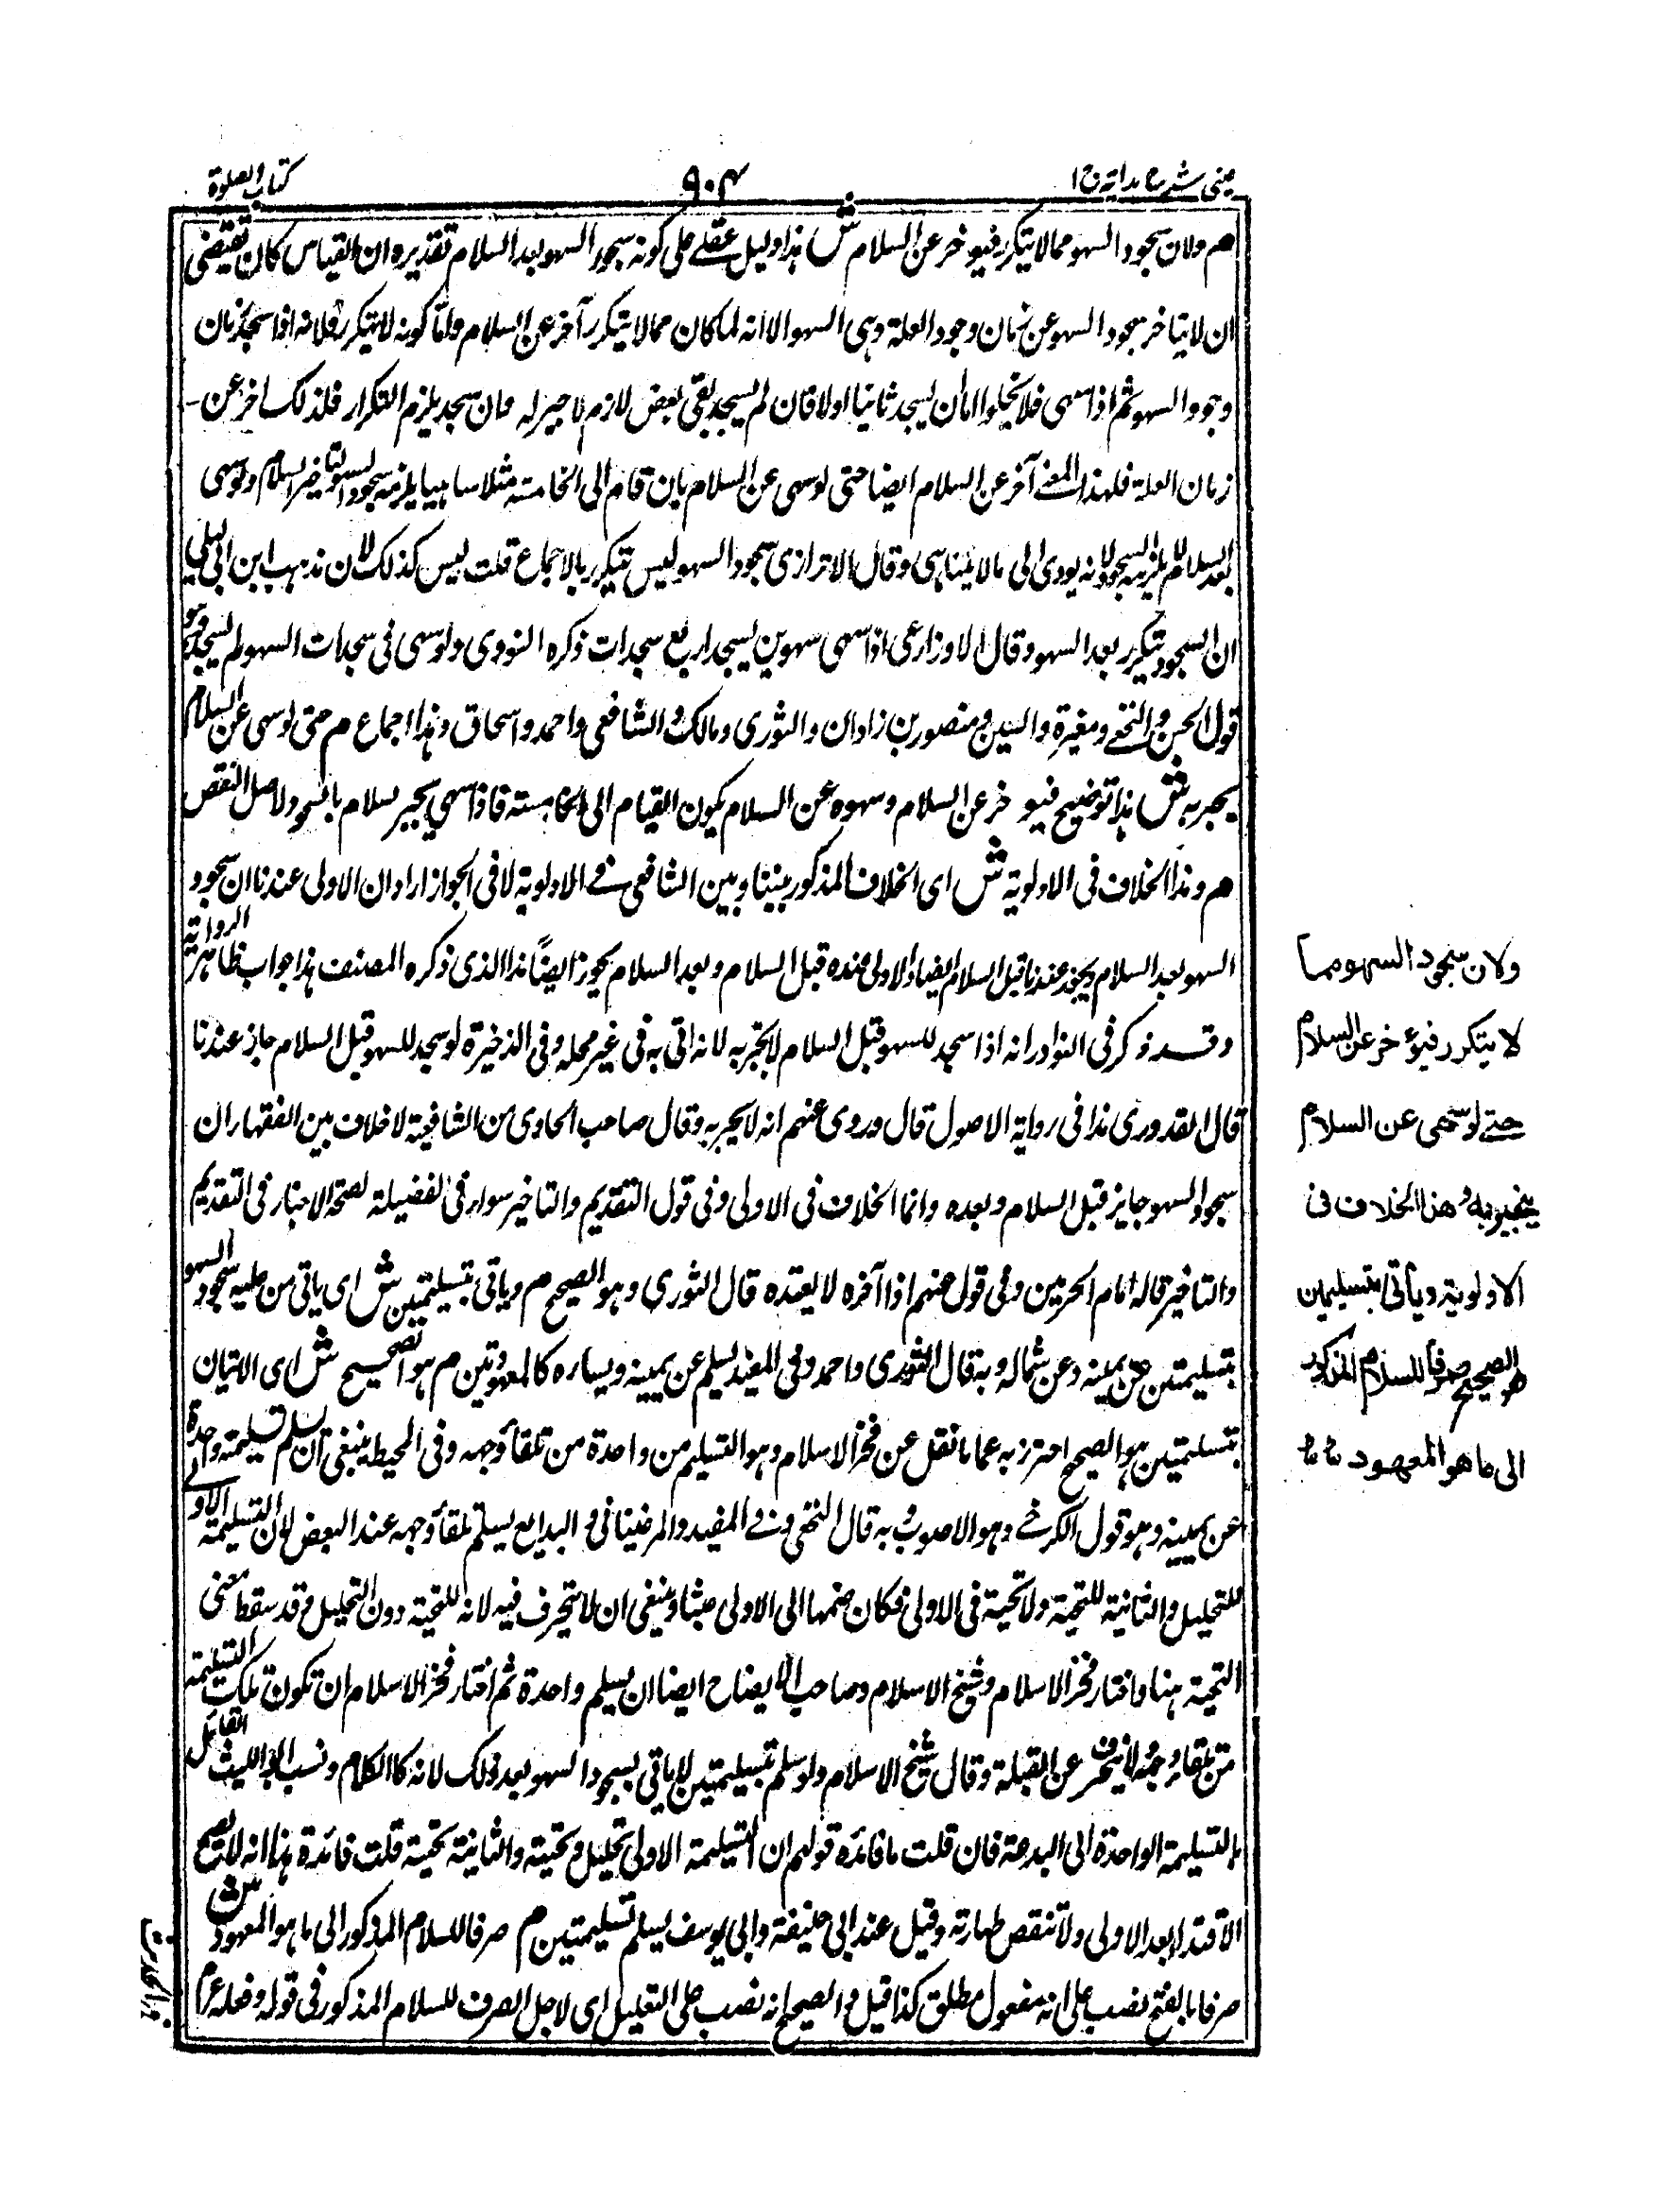 عینی شرح ہدایہ ج ا
۹۰۴
کتاب الصلوة
م ولان سجود السهو مما لا يتكرر فيؤخر عن السلام ش هذا دليل عقلے على كونه سجود السهو بعد السلام تقديره ان القياس كان يقتضى
ان لا يتاخر سجود السهو عن زمان وجود العلة وهى السهو الا انه لما كان مما لا يتكرر آخر عن السلام واما كونه لا يتكرر فلانه اذا سجد زمان
وجود السهو ثم اذا سهى فلا يخلوا اما ان يسجد ثانيا اولا فان لم يسجد بقى نقص لازم لا جبر له وان سجد يلزم التكرار فلذلك اخر عن
زمان العلة فلهذا المعنے آخر عن السلام ايضا حتى لوسهى عن السلام بان قام الى الخامسة مثلا ساهيا يلزمه سجود السهو لتاخير السلام ولوسهى
بعد السلام لا يلزمه السجود لانه يودى الى مالا يتناهى وقال الاترازى سجود السهو ليس يتكرر بالاجماع قلت ليس كذلك لان مذهب ابن ابى ليلى
ان السجود يتكرر بعد السهو وقال الاوزاعى اذا سهى سهوين يسجد اربع سجدات ذكره النووى ولوسهى فى سجدات السهو لم يسجد وهو
قول الحسن والنخعے ومغيرة والليث ومنصور بن زاذان والثورى ومالك والشافعى واحمد واسحاق وهذا اجماع م حتى لوسهى عن السلام
يجبر به ش هذا توضيح فيؤخر عن السلام وسهوه عن السلام يكون القيام الى الخامسة فاذا سهى يجبر سلام بالسجود لاصل النقص
م وهذا الخلاف فى الاولوية ش اى الخلاف المذكور بيننا وبين الشافعى فے الاولوية لا فى الجواز اراد ان الاولى عندنا ان سجود
السهو بعد السلام ويجوز عندنا قبل السلام ايضا والاولى عنده قبل السلام وبعد السلام يجوز ايضًا هذا الذى ذكره المصنف هذا جواب ظاهر الرواية
وقد ذكر فى النوادر انه اذا سجد للسهو قبل السلام لا يجزيه لانه اتى به فى غير محله وفى الذخيرة لو سجد للسهو قبل السلام جاز عندنا
قال القدورى هذا فى رواية الاصول قال وروى عنهم انه لا يجزيه وقال صاحب الحاوى من الشافعية لا خلاف بين الفقهاء ان
سجود السهو جايز قبل السلام وبعده وانما الخلاف فى الاولى وفى قول التقديم والتاخير سواء فى الفضيلة لصحة الاخبار فى التقديم
والتاخير قاله امام الحرمين وفى قول عنهم اذا آخره لا يعتده قال الثورى وهو الصحيح م وياتى بتسليمتين ش اى ياتى من عليه سجود السهو
بتسليمتين عن يمينه وعن شماله وبه قال الثورى واحمد وفى المفيد يسلم عن يمينه ويساره كالمعهودتين م هو الصحيح ش اى الاتيان
بتسليمتين هو الصحيح احترز به عما نقل عن فخر الاسلام وهو التسليم من واحدة من تلقاء وجهه وفى المحيط ينبغى ان يسلم تسليمة واحدة
عن يمينه وهو قول الكرخے وهو الاصوب وبه قال النخعى وفے المفيد والمرغينانى والبدايع يسلم تلقاء وجهه عند البعض لان التسليمة الاولے
للتحليل والثانية للتحية ولا تحية فى الاولى فكان ضمها الى الاولى عبثا وينبغى ان لا يتحرف فيه لانه للتحية دون التحليل وقد سقط معنى
التحية هنا واختار فخر الاسلام وشيخ الاسلام وصاحب الايضاح ايضا ان يسلم واحدة ثم اختار فخر الاسلام ان تكون تلك التسليمة
من تلقاء وجهه ولا ينحرف عن القبلة وقال شيخ الاسلام ولو سلم بتسليمتين لا ياتى بسجود السهو بعد ذلك لانه كالكلام ونسب ابو الليث القائل
بالتسليمة الواحدة الى البدعة فان قلت ما فائده قولهم ان التسليمة الاولى تحليل وتحية والثانية تحية قلت فائدة هذا انه لا يصح
الاقتداء بعد الاولى ولا تنقض طهارته وقيل عند ابى حنيفة وابى يوسف يسلم تسليمتين م صرفا للسلام المذكور الى ما هو المعهود ش
صرفا بالفتح نصب على انه مفعول مطلق كذا قيل والصحيح انه نصب على التعليل اى لاجل الصرف للسلام المذكور فى قوله وفعله عم
ولان سجود السهو مما
لا يتكرر فيؤخر عن السلام
حتے لو سهى عن السلام
ينجبر به وهذا الخلاف فى
الاولوية ويأتى بتسليمتين
هو الصحيح صرفًا للسلام المذكور
الى ما هو المعهود